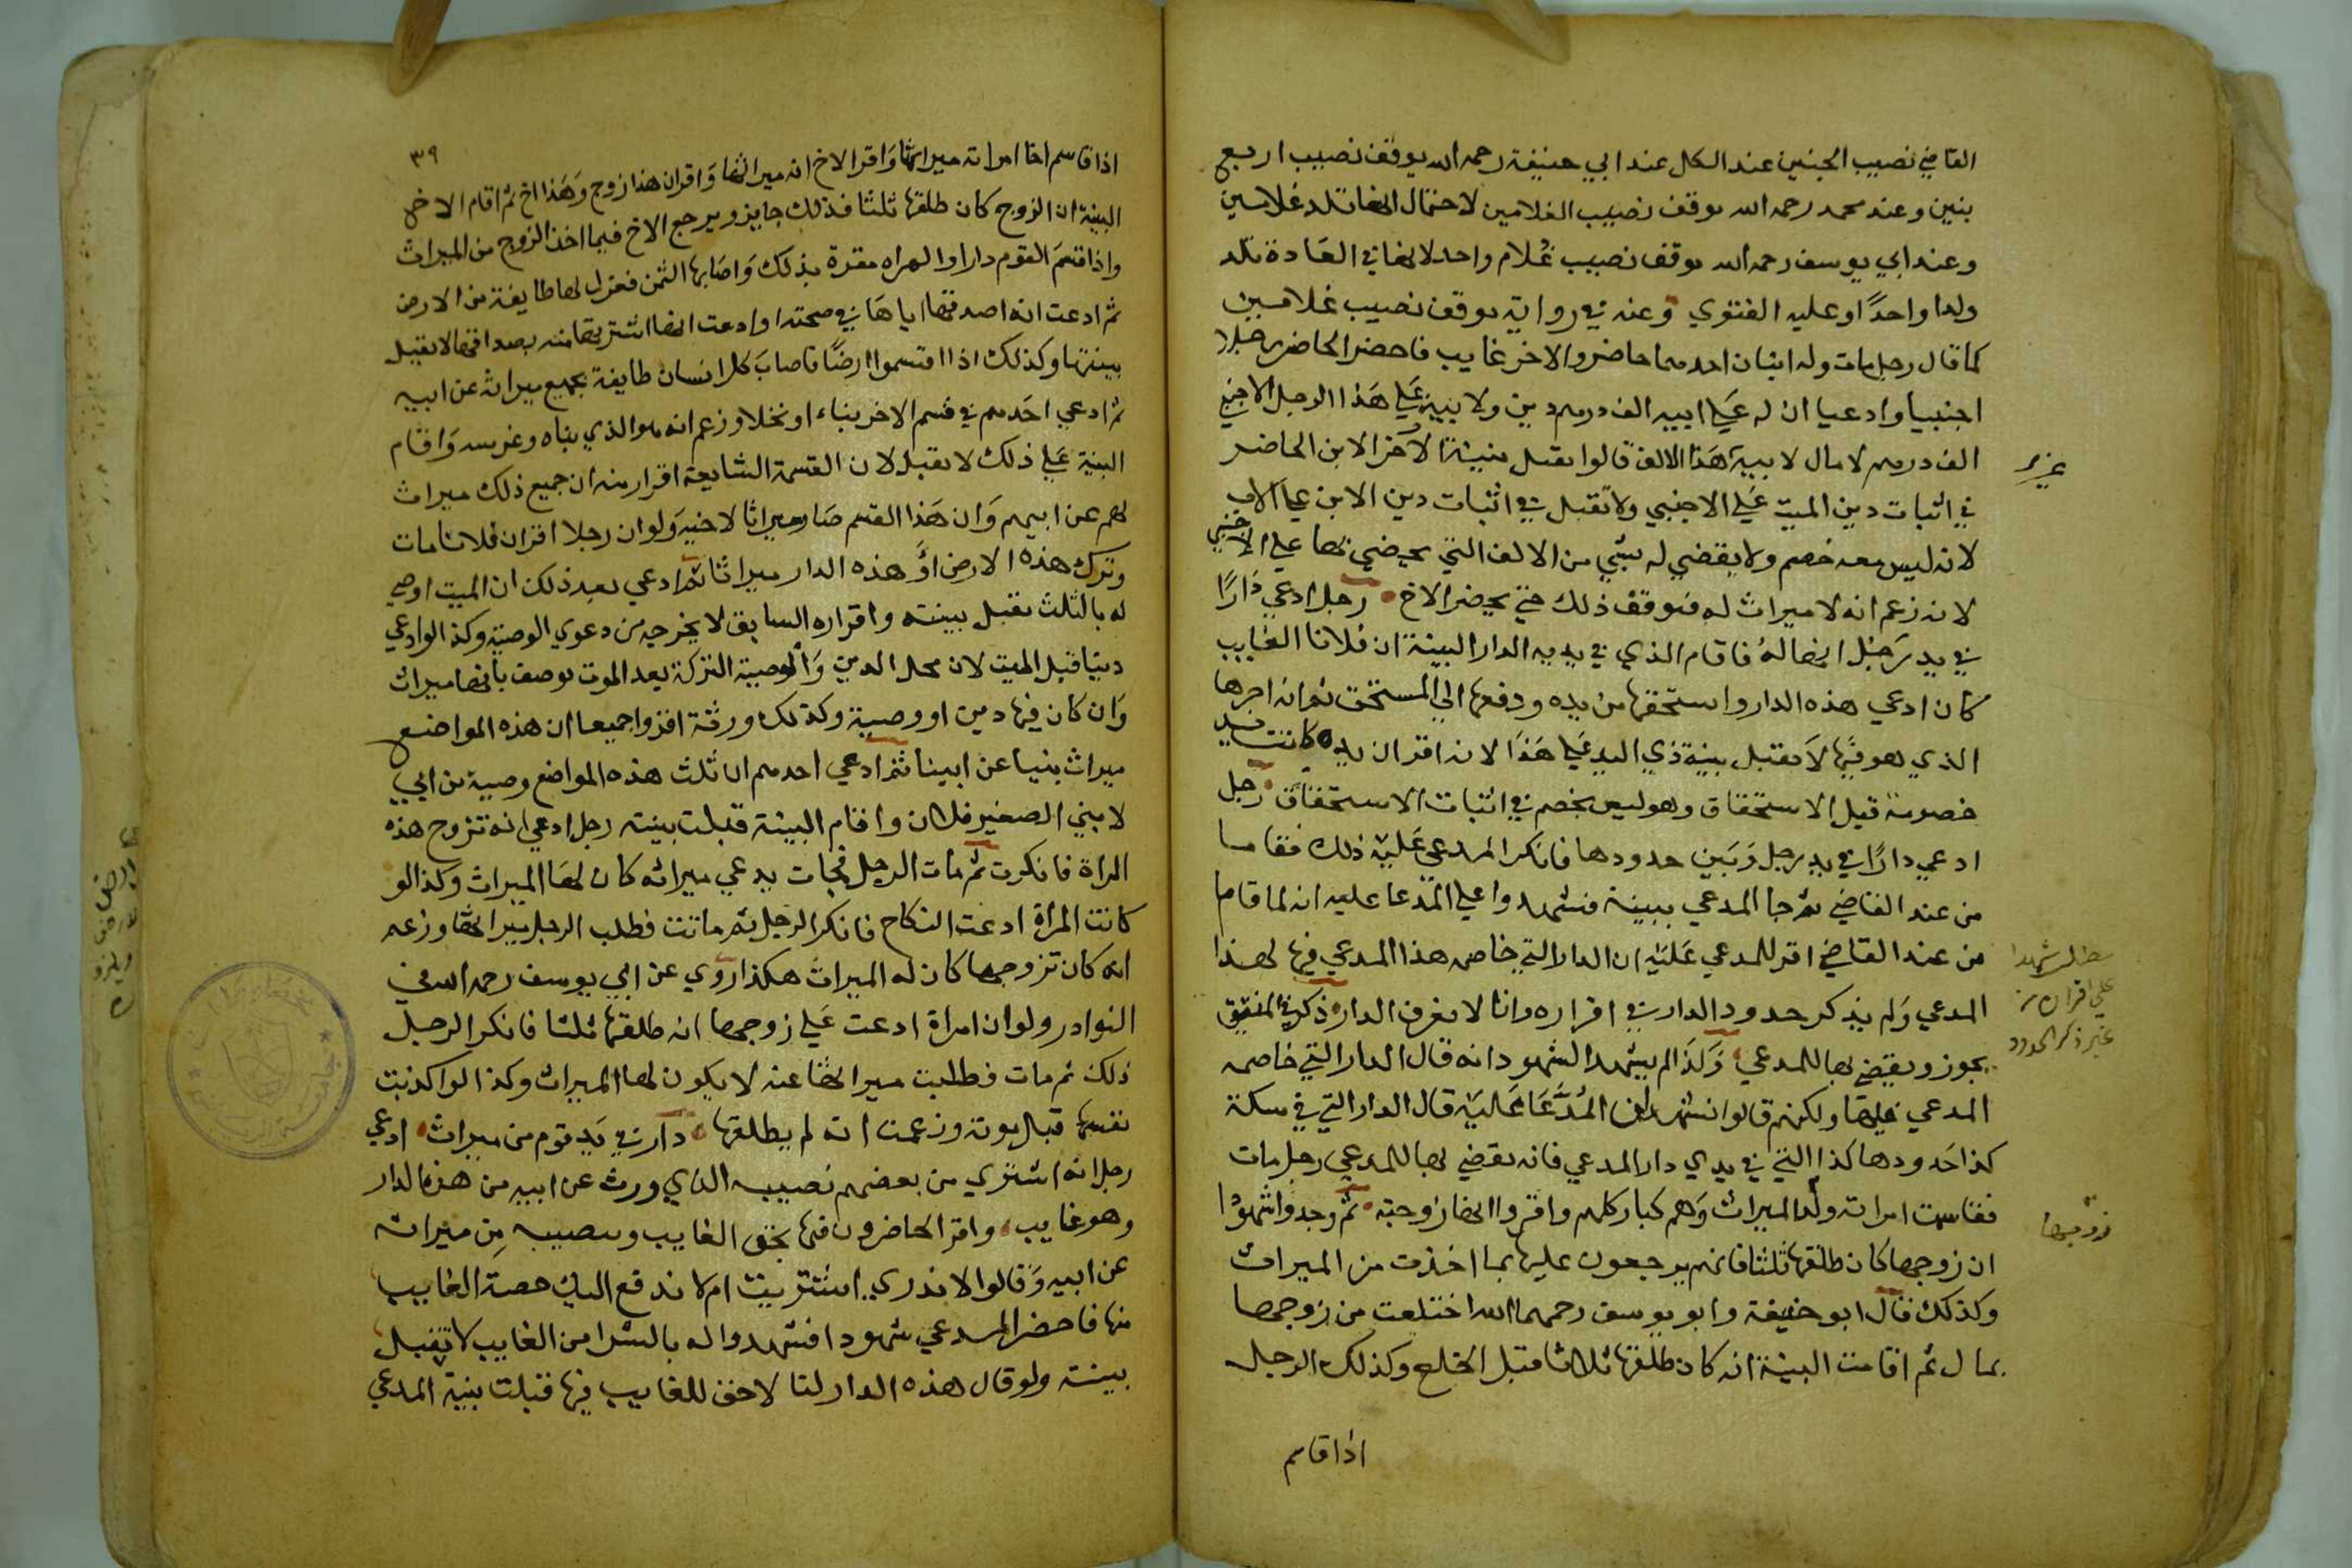 القاضي نصيب الجنين عند الكل عند ابي حنيفة رحمه الله يوقف نصيب اربع
بنين وعند محمد رحمه الله يوقف نصيب الغلامين لاحتمال انها تلد غلامين
وعند ابي يوسف رحمه الله يوقف نصيب غلام واحد لانها في العادة تلد
ولدا واحدًا وعليه الفتوي وعنه في رواية يوقف نصيب غلامين
كما قال رجل مات وله ابنان احدهما حاضر والاخر غايب فاحضر الحاضر رجلا
اجنبيا وادعيا ان له علي ابيه الف درهم دين ولابيه علي هذا الرجل الاجنبي
الف درهم لا مال لابيه هذا الالف قالوا يقبل بينة الاخر الابن الحاضر
في اثبات دين الميت علي الاجنبي ولا تقبل في اثبات دين الابن علي الاب
لانه ليس معه خصم ولا يقضي له بشي من الالف التي يقضي بها علي الاجنبي
لانه زعم انه لا ميراث له فيوقف ذلك حتي يحضر الاخ رجل ادعي دارًا
في يد رجل انها له فاقام الذي في يديه الدار البينة ان فلانا الغايب
كان ادعي هذه الدار واستحقها من يده ودفعها الي المستحق ثم انه اجرها
الذي هو فيها لا يقبل بينة ذي اليد علي هذا لانه اقر ان يده كانت يد
خصومة قبل الاستحقاق وهو ليس بخصم في اثبات الاستحقاق رجل
ادعي دارًا في يد رجل وبين حدودها فانكر المدعي عليه ذلك فقاما
من عند القاضي ثم جا المدعي ببينة فشهدوا علي المدعا عليه انه لما قاما
من عند القاضي اقر للمدعي عليه ان الدار التي خاصم هذا المدعي فيها لهذا
المدعي ولم يذكر حدود الدار في اقراره وانا لا نعرف الدار ذكر في المنتقي
يجوز ويقضي بها للمدعي وكذا لم يشهد الشهود انه قال الدار التي خاصمه
المدعي فيها ولكنهم قالوا نشهد ان المدعا عليه قال الدار التي في سكة
كذا حدودها كذا التي في يدي دار المدعي فانه يقضي بها للمدعي رجل مات
فقاسمت امراته ولده الميراث وهم كبار كلهم واقروا انها زوجته ثم وجدوا شهودًا
ان زوجها كان طلقها ثلثا فانهم يرجعون عليها بما اخذت من الميراث
وكذلك قال ابو حنيفة وابو يوسف رحمهما الله اختلعت من زوجها
بمال ثم اقامت البينة انه كان طلقها ثلاثا قبل الخلع وكذلك الرجل
اذا قاسم
مطلب شهدا
علي اقراره
غير ذكر الحدود
زوجها
٣٩
اذا قاسم اخا امراته ميراثها واقر الاخ انه ميراثها واقر ان هذا زوج وهذا اخ ثم اقام الاخ
البينة ان الزوج كان طلقها ثلثا فذلك جايز ويرجع الاخ فيما اخذ الزوج من الميراث
واذا قسم القوم دارا والمراه مقرة بذلك واصابها الثمن فعزل لها طايفة من الارض
ثم ادعت انه اصدقها اياها في صحته او ادعت انها اشترتها منه بصداقها لا يقبل
بينتها وكذلك اذا اقتسموا ارضًا فاصاب كل انسان طايفة بجميع ميراثه عن ابيه
ثم ادعي احدهم في قسم الاخر بناء او نخلا وزعم انه هو الذي بناه وغرسه واقام
البينة علي ذلك لا يقبل لان القسمة الشايعة اقرار منه ان جميع ذلك ميراث
لهم عن ابيهم وان هذا القسم صار ميراثا لاخيه ولو ان رجلا اقر ان فلانا مات
وترك هذه الارض او هذه الدار ميراثا ثم ادعي بعد ذلك ان الميت اوصي
له بالثلث يقبل بينته واقراره السابق لا يخرجه من دعوي الوصية وكذا لو ادعي
دينا قبل الميت لان محل الدين والوصية التركة بعد الموت يوصف بانها ميراث
وان كان فيها دين او وصية وكذلك ورثة اقروا جميعا ان هذه المواضع
ميراث بنيا عن ابينا ثم ادعي احدهم ان ثلث هذه المواضع وصية من ابي
لابني الصغير فلان واقام البينة قبلت بينته رجل ادعي انه تزوج هذه
المراة فانكرت ثم مات الرجل فجات يدعي ميراثه كان لها الميراث وكذا لو
كانت المراة ادعت النكاح فانكر الرجل ثم ماتت فطلب الرجل ميراثها وزعم
انه كان تزوجها كان له الميراث هكذا روي عن ابي يوسف رحمه الله في
النوادر ولو ان امراة ادعت علي زوجها انه طلقها ثلثا فانكر الرجل
ذلك ثم مات فطلبت ميراثها عنه لا يكون لها الميراث وكذا لو اكذبت
نفسها قبل موته وزعمت انه لم يطلقها دار في يد قوم من ميراث ادعي
رجل انه اشتري من بعضهم نصيبه الذي ورث عن ابيه من هذه الدار
وهو غايب واقر الحاضرون فيها بحق الغايب ونصيبه من ميراثه
عن ابيه وقالوا لا ندري اشتريت ام لا ندفع اليك حصة الغايب
منها فاحضر المدعي شهودا فشهدوا له بالشرا من الغايب لا تقبل
بينته ولو قال هذه الدار لنا لا حق للغايب فيها قبلت بينة المدعي